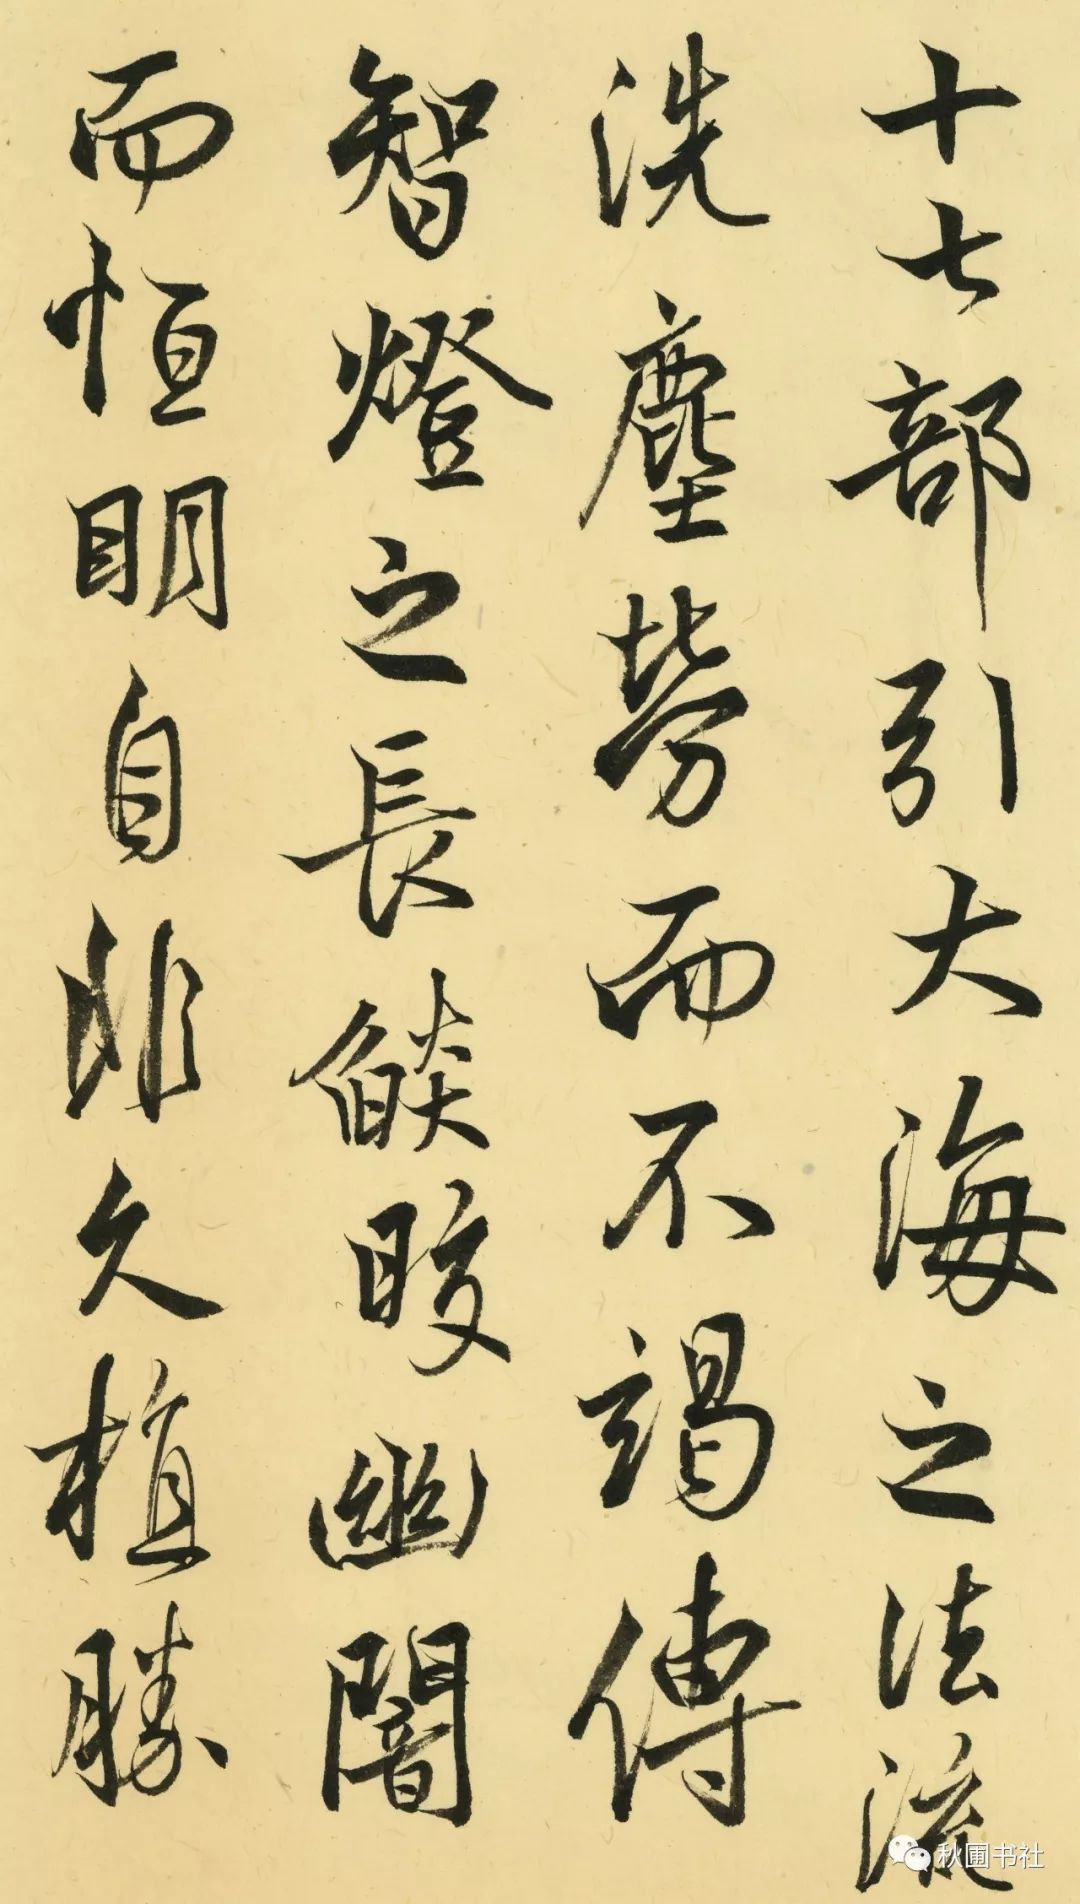 十七部引大海之法流
洗塵勞而不竭傳
智燈之長焰皎幽闇
而恒明自非久植勝
秋圃书社